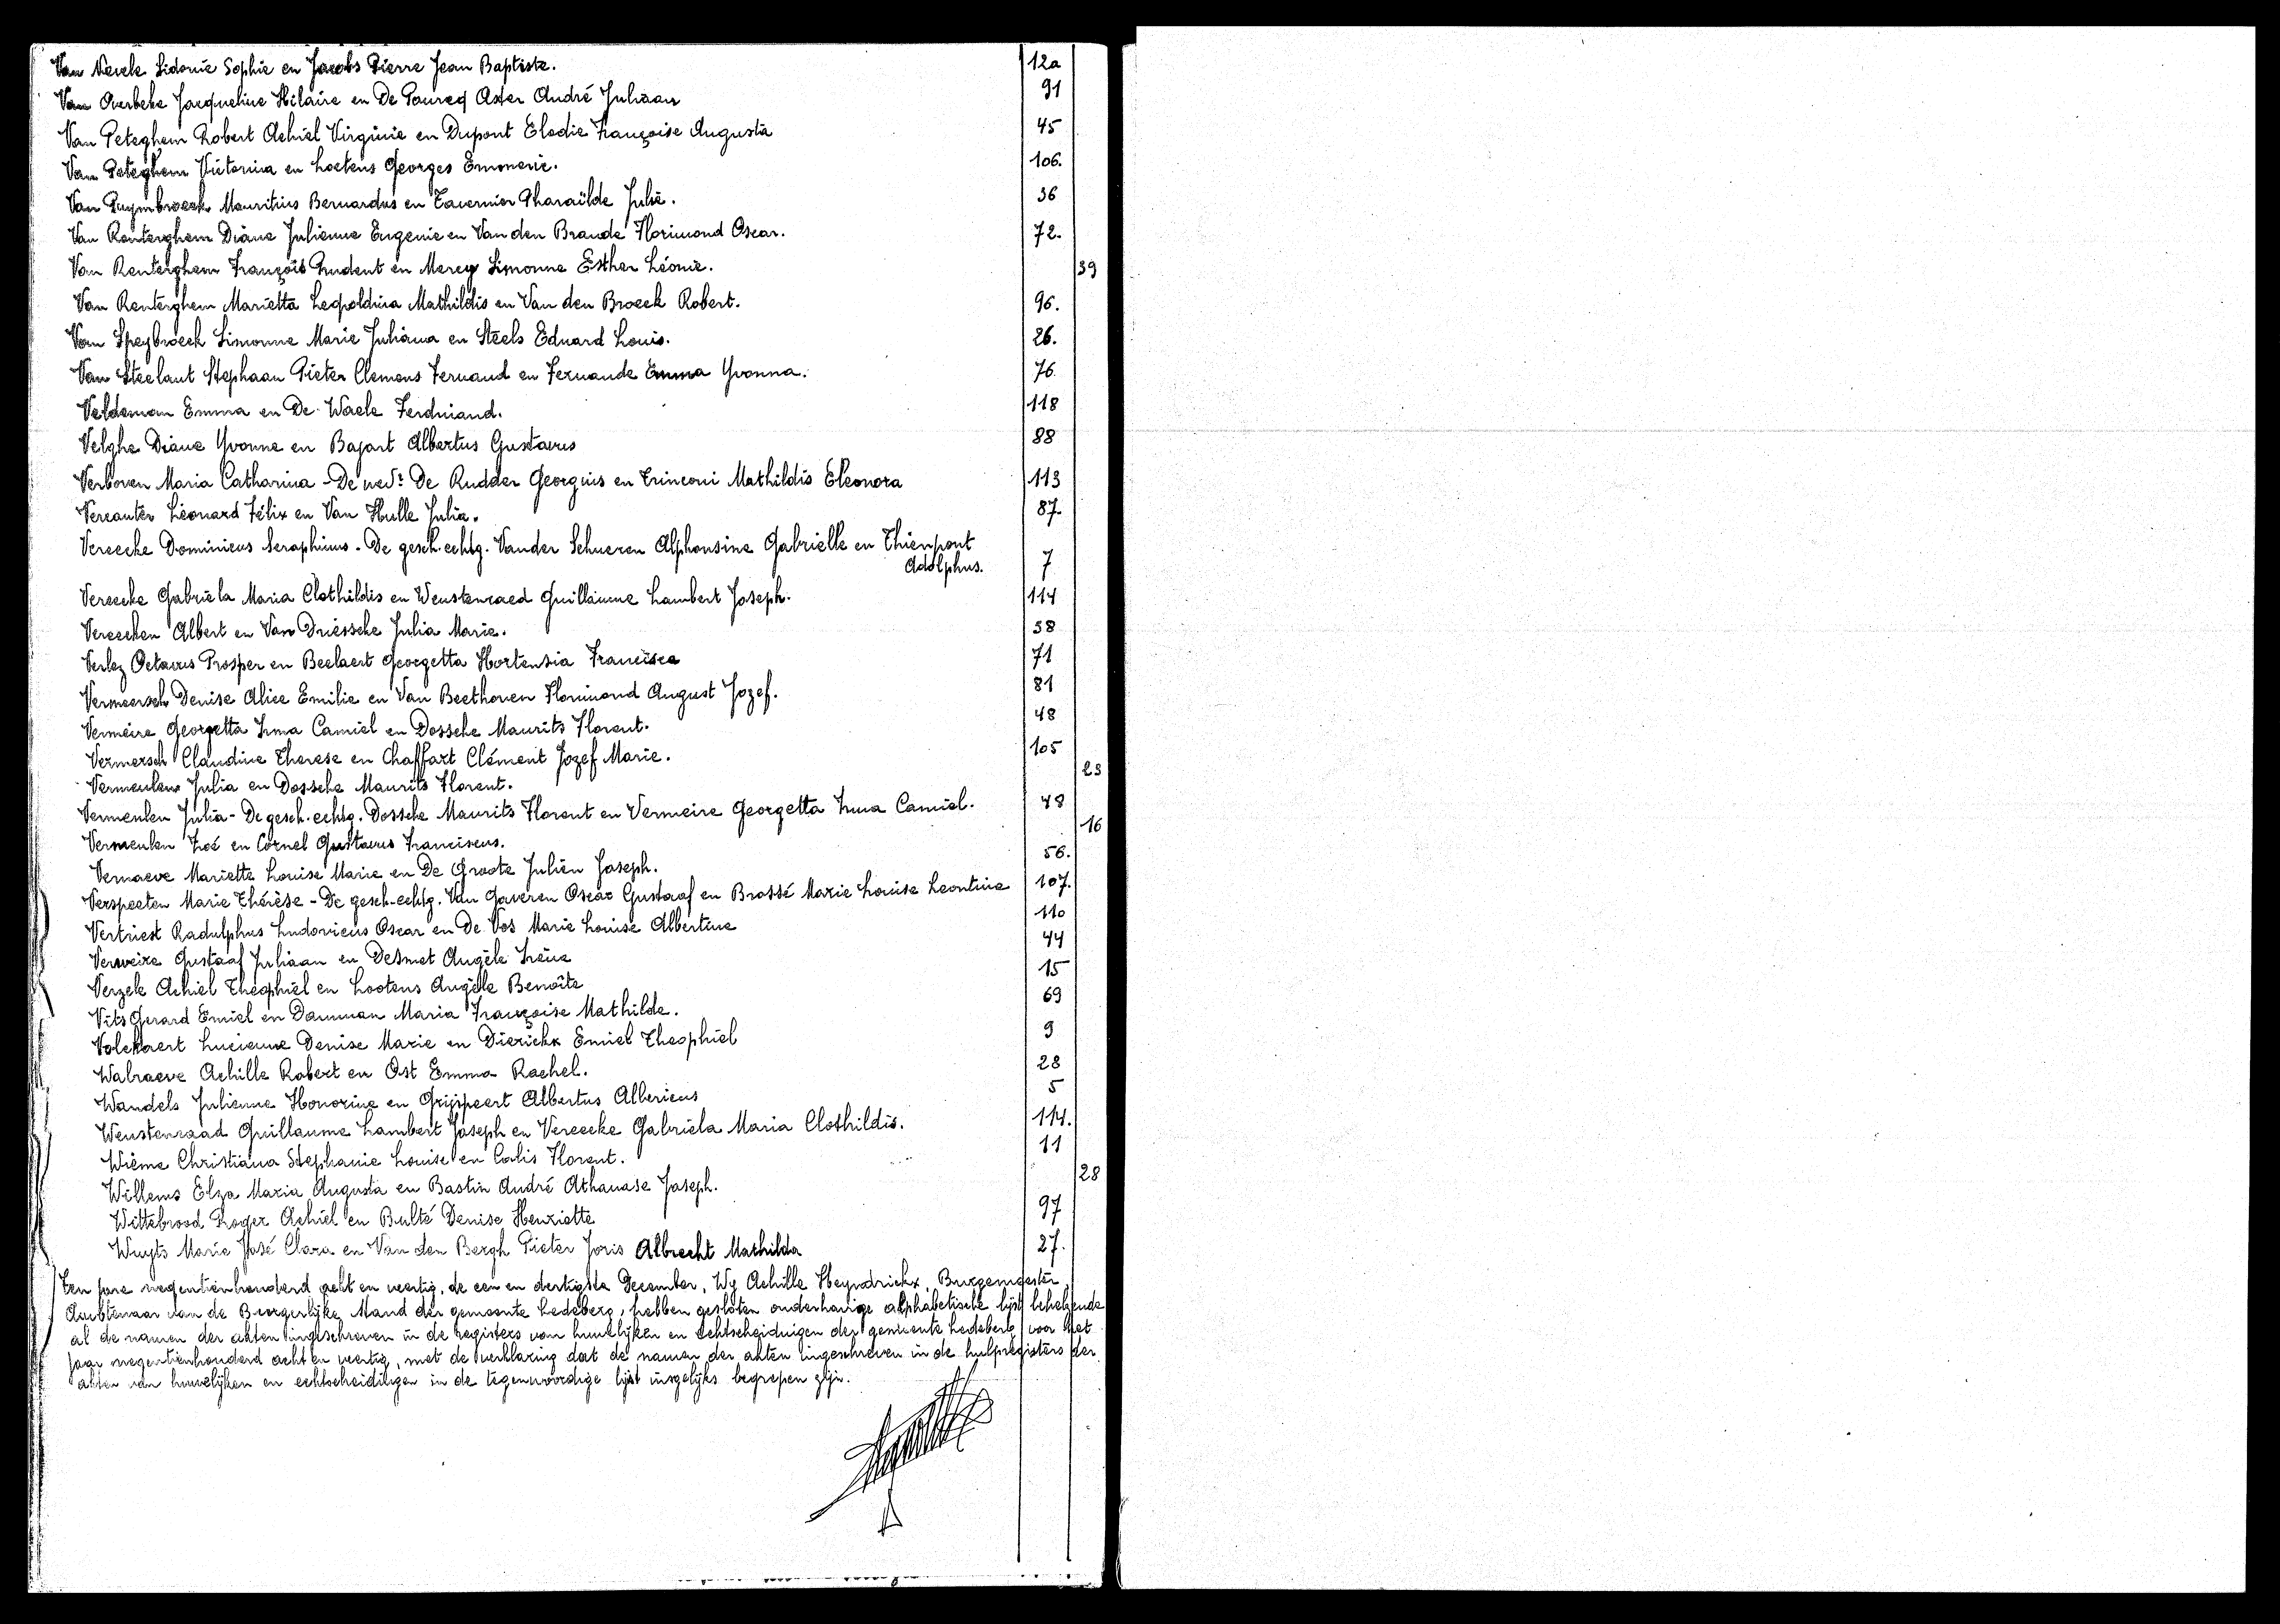 Van Nevele Sidonie Sophie en Jacobs Pierre Jean Baptiste. 12a
Van Overbeke Jacqueline Hilaire en De Pourcq Oster André Juliaan 91
Van Peteghem Robert Achiel Virginie en Dupont Elodie Françoise Augusta 45
Van Peteghem Victorina en Loetens Georges Emmeric. 106.
Van Puymbroeck Mauritius Bernardus en Tavernier Pharaïlde Julie. 36
Van Renterghem Diane Julienne Eugenie en Van den Brande Florimond Oscar. 72.
Van Renterghem François Prudent en Mercy Simonne Esther Léonie. 39
Van Renterghem Marietta Leopoldina Mathildis en Van den Broeck Robert. 96.
Van Speybroeck Simonne Marie Juliana en Steels Eduard Louis. 26.
Van Steelant Stephaan Pieter Clemens Fernand en Fernande Emma Yvonna. 76
Veldeman Emma en De Waele Ferdinand. 118
Velghe Diane Yvonne en Bajart Albertus Gustavus 88
Verboven Maria Catharina - De wed: De Rudder Georgius en Trinconi Mathildis Eleonora 113
Vercauter Léonard Félix en Van Hulle Julia. 87.
Vereecke Dominicus Seraphinus - De gesch. echtg. Vander Schueren Alphonsine Gabrielle en Thienpont
Adolphus. 7
Vereecke Gabriela Maria Clothildis en Weustenraed Guillaume Lambert Joseph. 114
Vereecken Albert en Van Driessche Julia Marie. 38
Verlez Octavus Prosper en Beelaert Georgetta Hortensia Francisca 71
Vermeersch Denise Alice Emilie en Van Beethoven Florimond August Jozef. 81
Vermeire Georgetta Irma Camiel en Dossche Maurits Florent. 48
Vermersch Claudine Therese en Chaffart Clément Jozef Marie. 105
Vermeulen Julia en Dossche Maurits Florent. 23
Vermeulen Julia - De gesch. echtg. Dossche Maurits Florent en Vermeire Georgetta Irma Camiel. 48
Vermeulen Zoé en Cornel Gustavus Franciscus. 16
Vernaeve Mariette Louise Marie en De Groote Julien Joseph. 56.
Verspeeten Marie Thérèse - De gesch. echtg. Van Gaveren Oscar Gustaaf en Brossé Marie Louise Leontine 107.
Vertriest Radulphus Ludovicus Oscar en De Vos Marie Louise Albertine 110
Verweire Gustaaf Juliaan en Desmet Angèle Irène 44
Verzele Achiel Theophiel en Lootens Angèle Benoîte 15
Vits Gerard Emiel en Damman Maria Françoise Mathilde. 69
Volckaert Lucienne Denise Marie en Dierickx Emiel Theophiel 9
Walraeve Achille Robert en Ost Emma Rachel. 28
Wandels Julienne Honorine en Grijspeert Albertus Albericus 5
Weustenraad Guillaume Lambert Joseph en Vereecke Gabriela Maria Clothildis. 114.
Wième Christiana Stephanie Louise en Calis Florent. 11
Willems Elza Maria Augusta en Bastin André Athanase Joseph. 28
Wittebrood Roger Achiel en Bulté Denise Henriette 97
Wuyts Marie José Clara en Van den Bergh Pieter Joris Albrecht Mathilda 27.
Ten jare negentienhonderd acht en veertig, de een en dertigste December, Wy Achille Heyndrickx, Burgemeester,
Ambtenaar van de Burgerlijke Stand der gemeente Ledeberg, hebben gesloten onderhavige alphabetische lijst behelzende
al de namen der akten ingeschreven in de registers van huwelijken en echtscheidingen der gemeente Ledeberg voor het
jaar negentienhonderd acht en veertig, met de verklaring dat de namen der akten ingeschreven in de hulpregisters der
akten van huwelijken en echtscheidingen in de tegenwoordige lijst insgelijks begrepen zijn.